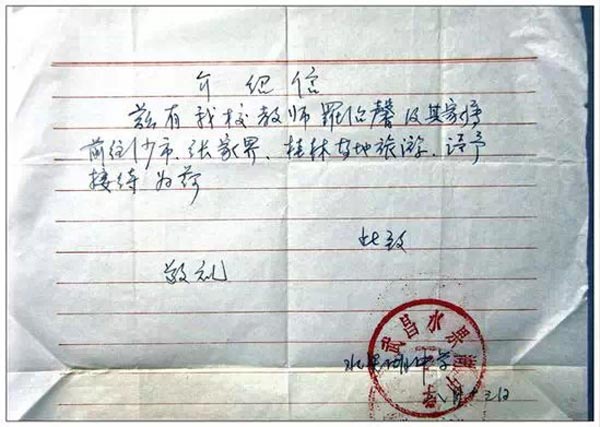 介绍信
兹有我校教师罗伯馨及其家属
前往沙市、张家界、桂林等地旅游、请予
接待为荷
此致
敬礼
武昌水果湖中学
水果湖中学